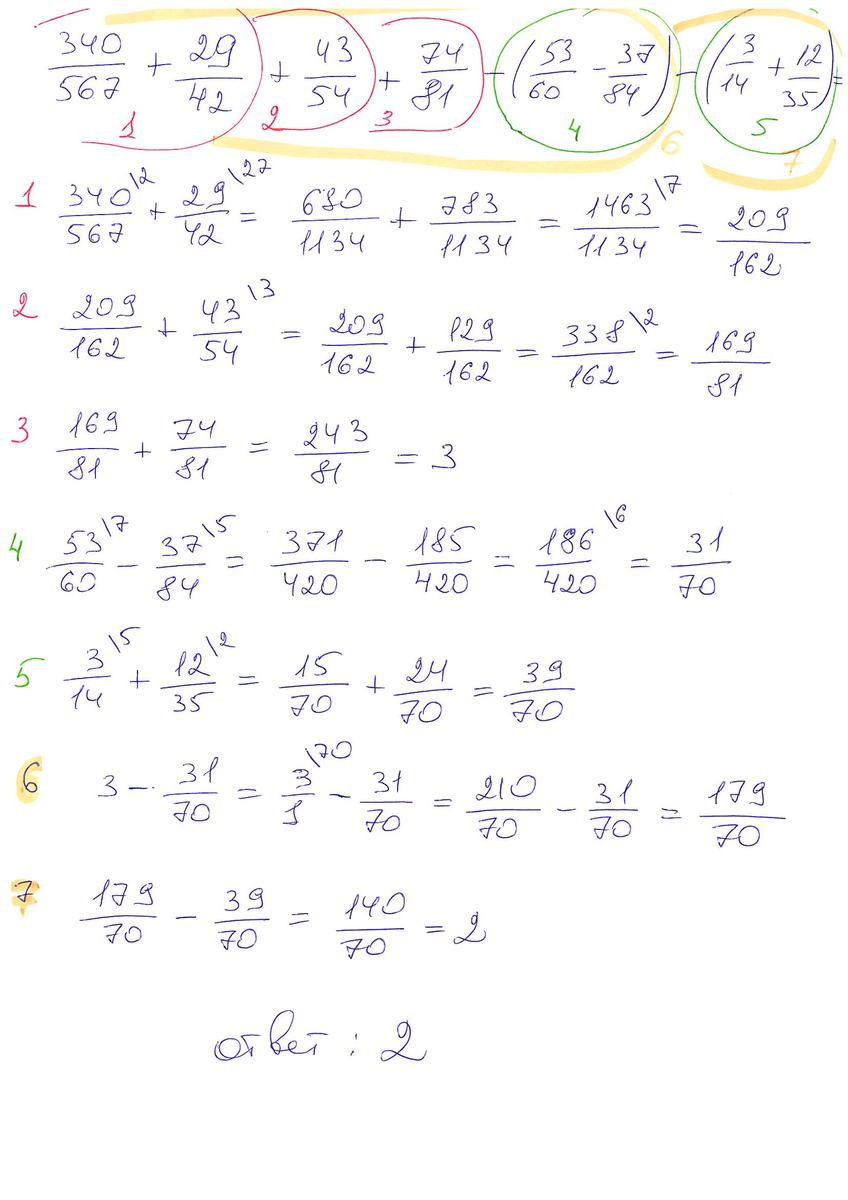 340/567 + 29/42 + 43/54 + 74/81 - (53/60 - 37/84) - (3/14 + 12/35) =
1 2 3 4 5 6 7
1 340\2/567 + 29\27/42 = 680/1134 + 783/1134 = 1463\7/1134 = 209/162
2 209/162 + 43\3/54 = 209/162 + 129/162 = 338\2/162 = 169/81
3 169/81 + 74/81 = 243/81 = 3
4 53\7/60 - 37\5/84 = 371/420 - 185/420 = 186\6/420 = 31/70
5 3\5/14 + 12\2/35 = 15/70 + 24/70 = 39/70
6 3 - 31/70 = 3\70/1 - 31/70 = 210/70 - 31/70 = 179/70
7 179/70 - 39/70 = 140/70 = 2
ответ : 2